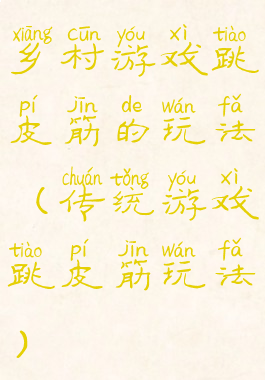 xiāng cūn yóu xì tiào
乡村游戏跳
pí jīn de wán fǎ
皮筋的玩法
chuán tǒng yóu xì
（传统游戏
tiào pí jīn wán fǎ
跳皮筋玩法
）